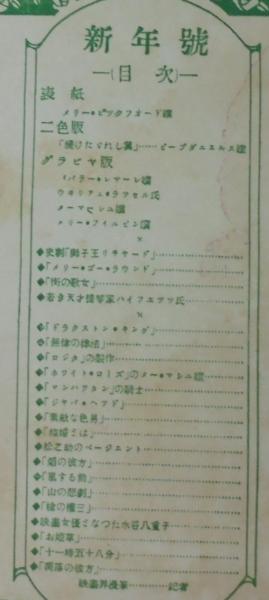 新年號
―(目次)―
表紙
メリー・ピックフオード孃
二色版
「傷けたぐれし翼」……ビーブダニエルス孃
グラビヤ版
バーバラー・レマーレ孃
ウヰリアム・ラツセル氏
メー・マーシユ孃
メリー・フイルビン孃
×
◆史劇「獅子王リチヤード」
◆「メリー・ゴー・ラウンド」
◆「街の歌女」
◆若き天才提琴家ハイフエツツ氏
×
◆「ドラクストン・キング」
◆「無律の律法」
◆「ロジタ」の製作
◆「ホワイト・ローズ」のメー・マシユ孃
◆「マンハツタン」の騎士
◆「ジヤバ・ヘツド」
◆「素敵な色男」
◆「結婚とは」
◆松之助のページエント
◆「煙の彼方」
◆「風する前」
◆「山の悲劇」
◆「槍の權三」
◆映畫女優となつた水谷八重子
◆「お姫草」
◆「十一時五十八分」
◆「凋落の彼方」
映畫界漫筆………記者